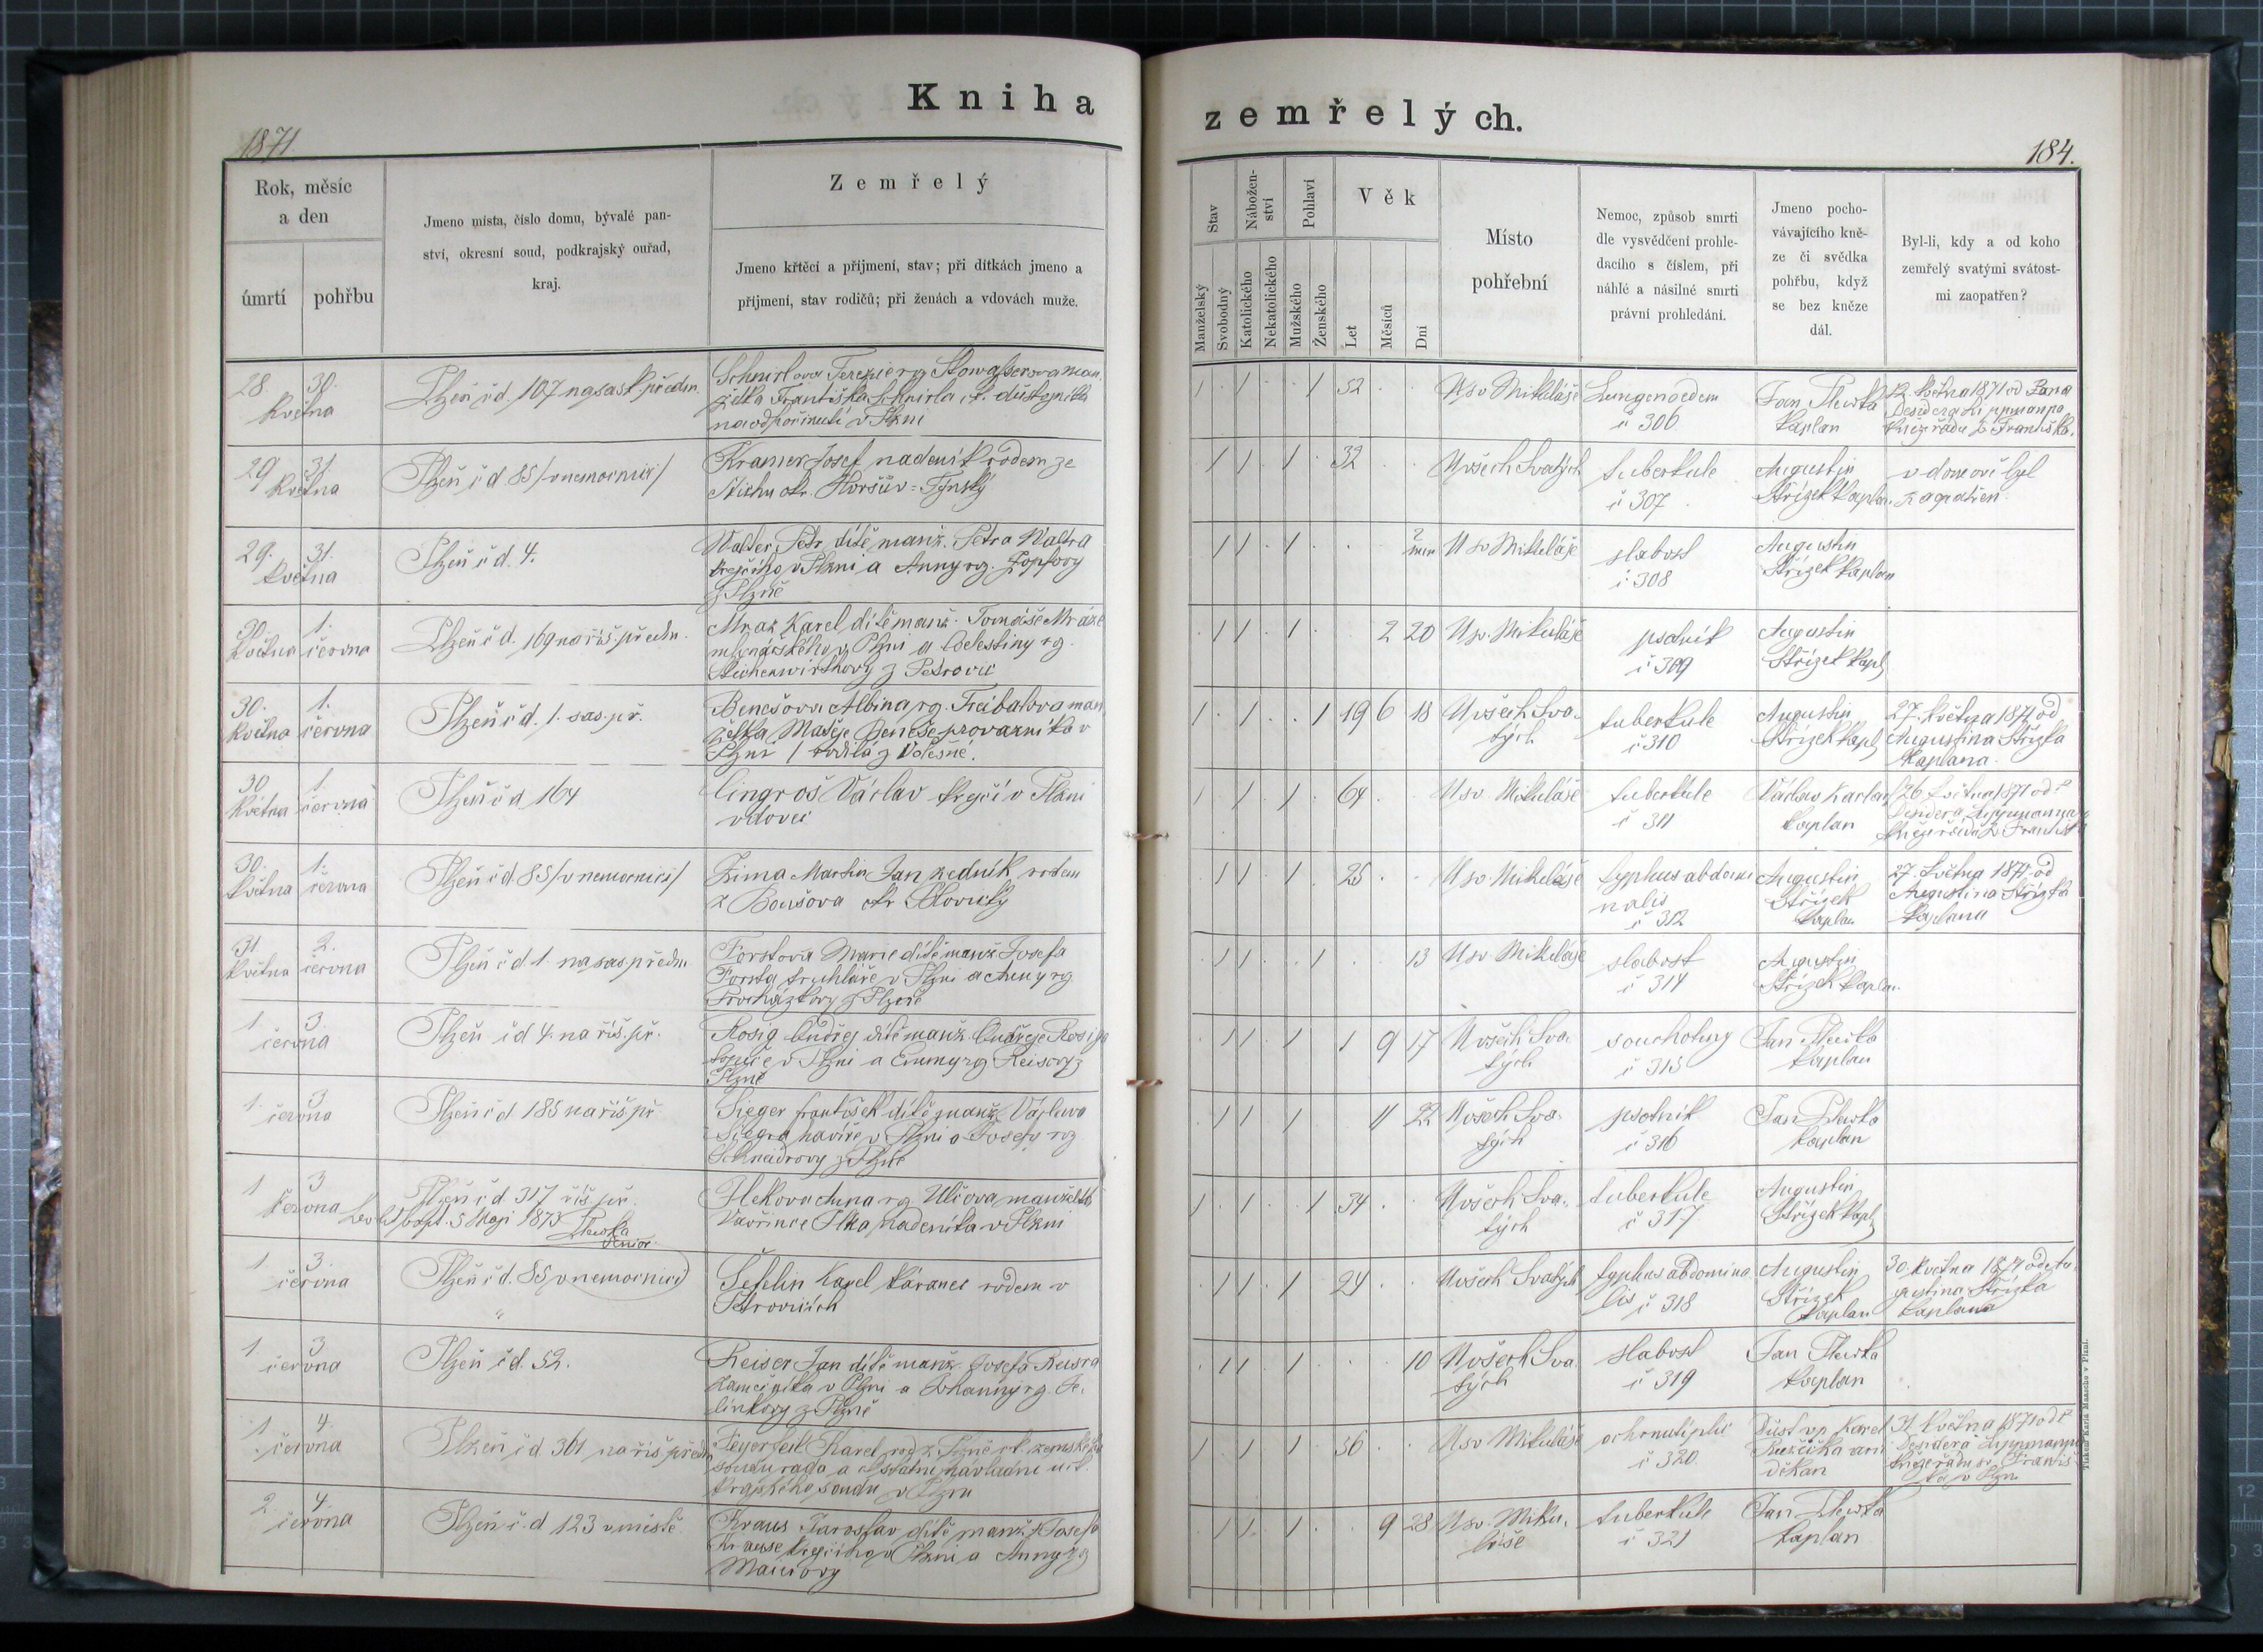 Kniha
zemřelých.
1871
184.
Rok, měsíc
a den
úmrtí
pohřbu
Jmeno místa, číslo domu, bývalé pan-
ství, okresní soud, podkrajský ouřad,
kraj.
Zemřelý
Jmeno křtěcí a příjmení, stav; při dítkách jmeno a
příjmení, stav rodičů; při ženách a vdovách muže.
Stav
Nábožen-
ství
Pohlaví
Věk
Manželský
Svobodný
Katolického
Nekatolického
Mužského
Ženského
Let
Měsíců
Dní
Místo
pohřební
Nemoc, způsob smrti
dle vysvědčení prohle-
dacího s číslem, při
náhlé a násilné smrti
právní prohledání.
Jmeno pocho-
vávajícího kně-
ze či svědka
pohřbu, když
se bez kněze
dál.
Byl-li, kdy a od koho
zemřelý svatými svátost-
mi zaopatřen?
28. 30.
května
Plzeň čd. 107 na sask. předm.
Schnirlova Terezie rg.
želka Františka Schnirla c.k. důstojníka
na odpočinutí v Plzni
1 1 1 52
U sv Mikuláše
Lungenoedem
č 306
Jan
kaplan
12. května 1871 od
Desidera Lippmanna
kněz řádu s. Františka.
29 31.
května
Plzeň čd 85 /v nemocnici/
Kramer Josef nadeník rodem ze
okr. Horšův-Týnský
1 1 1 32
U všech Svatých
tuberkule
č 307
Augustin
Střízek kaplan
v domově byl
zaopatřen
29. 31.
května
Plzeň čd. 4.
Walter Petr dítě manž. Petra Waltra
krejčího v Plzni a Anny rg. Zopfovy
z Plzně
1 1 1
U sv Mikuláše
slabost
č 308
Augustin
Střízek kaplan
30. 1.
května června
Plzeň čd. 169 na říš. předm.
Mraz Karel dítě manž. Tomáše Mráze
v Plzni a Celestiny rg.
z Petrovic
1 1 1 2 20
U sv. Mikuláše
psotník
č 309
Augustin
Střízek kapl
30. 1.
května června
Plzeň čd. 1. sas. př.
Benešova Albina rg. man
želka Matěje Beneše provazníka v
Plzni / rodilá z Volešné.
1 1 1 19 6 18
U všech Sva-
tých
tuberkule
č 310
Augustin
Střízek kapl
27. května 1871 od
Augustina Střízka
kaplana.
30 1
května června
Plzeň čd 164
Cingroš Václav krejčí v Plzni
vdovec
1 1 1 64
U sv. Mikuláše
tuberkule
č 311
Václav Karlan
kaplan
26 května 1871 od
Desidera Lippmanna
kněze řádu s. Františk
30. 1.
května června
Plzeň čd. 85 /v nemocnici/
Zima Martin Jan zedník rodem
z okr. Blovický
1 1 1 25
U sv. Mikuláše
typhus abdomi
nalis
č 312
Augustin
Střízek
kaplan
27. května 1871 od
Augustina Střízka
kaplana
31 2.
května června
Plzeň čd. 1. na sas. předm
Forstova Marie dítě manž Josefa
Forsta truhláře v Plzni a Anny rg.
Procházkovy z Plzně
1 1 1 13
U sv Mikuláše
slabost
č 314
Augustin
Střízek kaplan.
1 3
června
Plzeň čd 4. na říš. př.
Rosig Ondřej dítě manž. Ondřeje Rosiga
v Plzni a Emmy rg. Reisovy z
Plzně
1 1 1 1 9 17
U všech Sva-
tých
souchotiny
č 315
Jan
kaplan
1. 3
června
Plzeň čd 185 na říš př
Sieger František dítě manž Václava
Siegra havíře v Plzni a Josefy rg.
Schneidrovy z Plzně
1 1 1 11 22
U všech Sva-
tých
psotník
č 316
Jan
kaplan
1 3
června
Plzeň čd. 317 říš. př.
5 Maji 1875
Senior
Anna rg. Ulčova manželka
Vavřince nadeníka v Plzni
1 1 1 34
U všech Sva-
tých
tuberkule
č 317
Augustin
Střízek kapl
1 3.
června
Plzeň čd. 85 (v nemocnici)
Šefelin Karel káranec rodem v
Petrovicích
1 1 1 24
U všech Svatých
typhus abdomina
lis č 318
Augustin
Střízek
kaplan
30. května 1871 od Au-
gustina Střízka
kaplana
1 3
června
Plzeň čd. 52.
Reiser Jan dítě manž. Josefa Reisra
zámečníka v Plzni a Johanny rg. Je-
línkovy z Plzně
1 1 1 10
U všech Sva
tých
slabost
č 319
Jan
kaplan
1. 4.
června
Plzeň čd 361 na říš předm
Feyerfeil Karel rod z Plzně ck. zemského
soudu rada a státní návladní u ck.
krajského soudu v Plzni
1 1 1 56
U sv Mikuláše
ochrnutí plic
č 320.
Důst. vp. Karel
Růžička arci
děkan
31. května 1871 od
Desidera Lippmanna
kněze řádu sv. Františ
ka v Plzni
2 4.
června
Plzeň č.d 123 v městě.
Kraus Jaroslav dítě manž. Josefa
Krause krejčího v Plzni a Anny rg
1 1 1 9 28
U sv. Miku-
láše
tuberkule
č 321
Jan
kaplan
Tiskem Karla Maascha v Plzni.